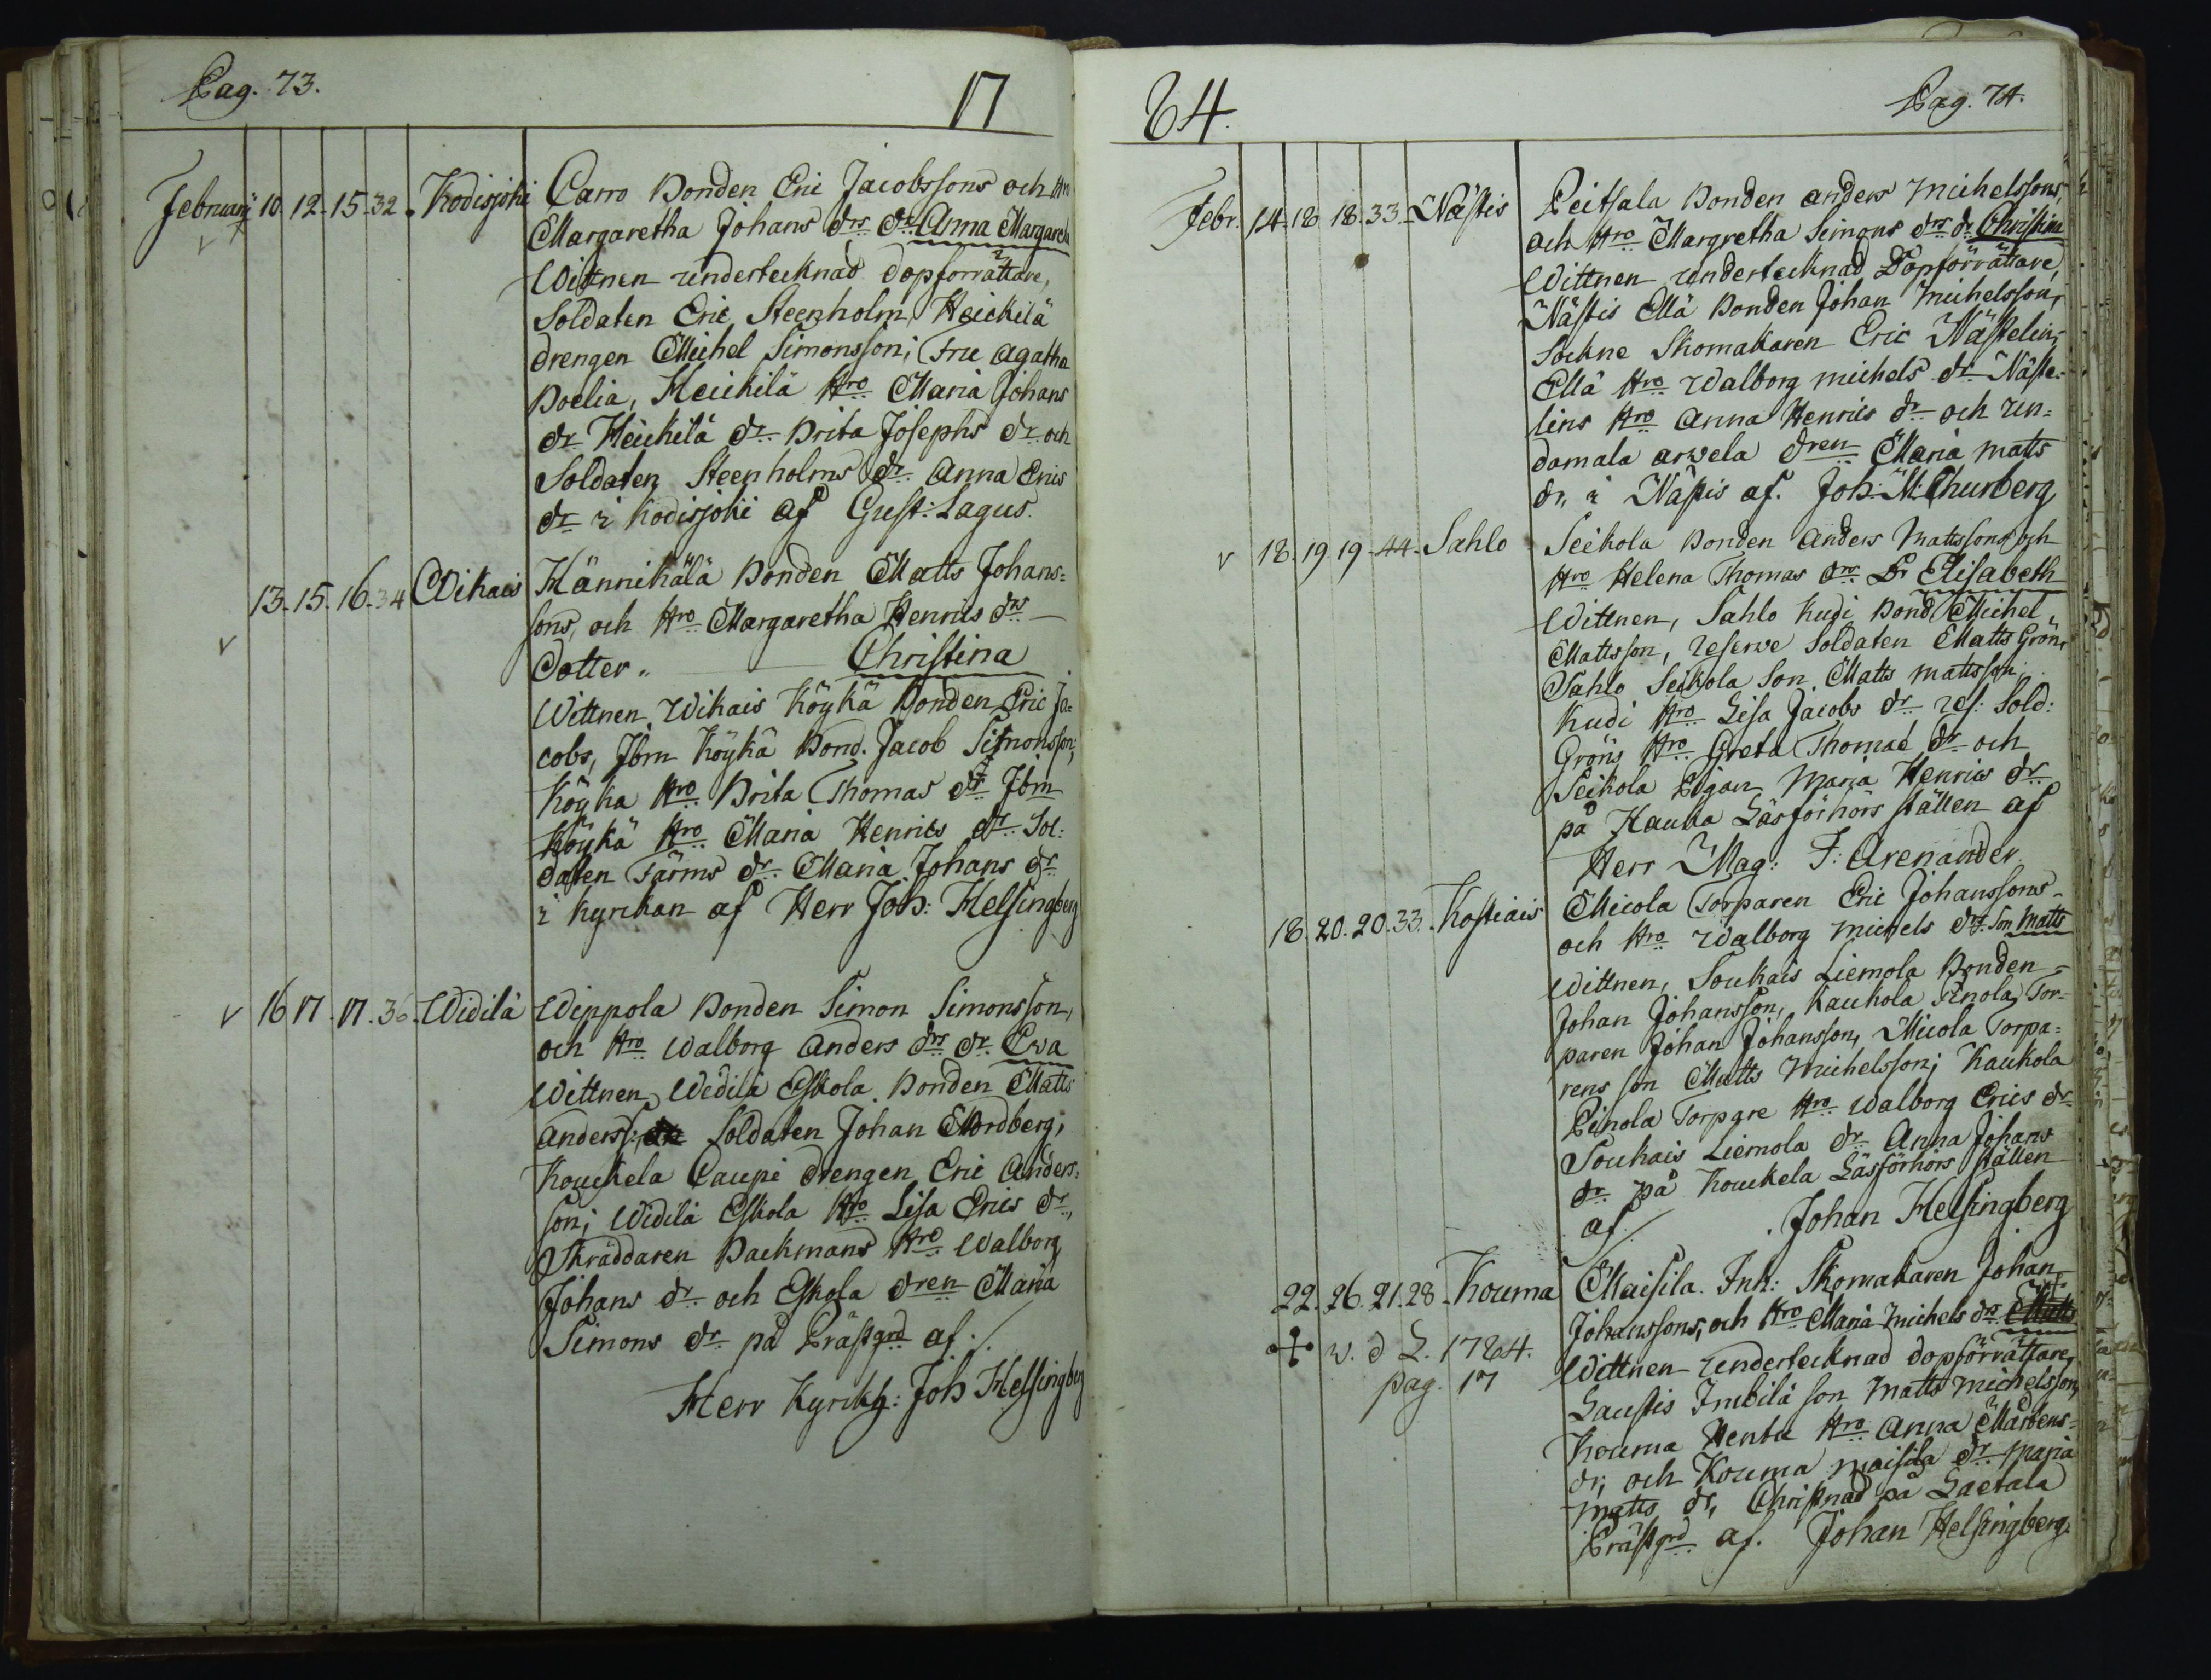 Pag. 73.
17
Februarii 10. 12. 15. 32. Kodisjoki Carro Bonden Eric Jacobssons och Hro
Margaretha Johans drs dr. Anna Margareta
Wittnen undertecknad dopforrättare,
Soldaten Eric Steenholm, Heickilä
drengen Michel Simonsson; Fru Agatha
Boelia, Heickilä Hro Maria Johans
dr Heickilä dr. Brita Josephs dr och
Soldaten Steenholms dr. Anna Erics
dr i Kodisjoki af Gust: Lagus.
13. 15. 16. 34 Wikais Männikälä Bonden Matts Johans=
sons, och Hro Margaretha Henrics drs
Dotter " Christina
Wittnen, Wikais Köykä Bonden Eric Ja=
cobs, Jbm Köykä Bond. Jacob Simonsson;
Köyka Hro Brita Thomas dr Jbm
Köykä Hro Maria Henrics dr. Sol:
daten Färms dr. Maria Johans dr
i kyrckan af Herr Joh: Helsingberg
16 17. 17. 36. Widilä Wippola Bonden Simon Simonsson,
och Hro Walborg Anders drs dr. Ewa
Wittnen, Widilä Eskola Bonden Matts
Anderss: Soldaten Johan Nordberg,
Kouckela Caupi drengen Eric Anders=
son; Widilä Eskola Hro Lisa Erics dr,
Skräddaren Backmans Hro Walborg
Johans dr och Eskola dren Maria
Simons dr på Prästgrd af./
Herr Kyrckh: Joh Helsingberg
64.
Pag. 74.
Febr. 14. 18 18. 33. Nästis Peitsala Bonden Anders Michelssons,
och Hro Margretha Simons drs dr Christina
Wittnen undertecknad Dopförrättare,
Nästis Ellä Bonden Johan Michelsson,
Sockne Skomakaren Eric Nästelin;
Ellä Hro Walborg Michels dr Näste=
lins Hro Anna Henrics dr och Un=
damala arwela dren Maria Matts
dr, i Nästis af. Joh: M: Thurberg
18. 19 19. 44. Sahlo Seikola Bonden Anders Mattssons och
Hro Helena Thomas drs Dr Elisabeth
Wittnen, Sahlo Kudi Bond Michel
Mattsson, reserve Soldaten Matts Grön,
Sahlo Seikola Son Matts Mattsson;
Kudi Hro Lisa Jacobs dr res: Sold:
Gröns Hro Greta Thomae dr och
Seikola Pigan Maria Henrics dr
på Kauka Läsförhörs ställen af
Herr Mag: F: Arenander
18. 20. 20. 33. Kostiais Micola Torparen Eric Johanssons
och Hro Walborg Michels drs Son Matts
Wittnen, Soukais Liemola Bonden
Johan Johansson, Kaukola Pinola Tor=
paren Johan Johansson, Micola Torpa=
rens son Matts Michelsson; Kaukola
Pinola Torpare Hro Walborg Erics dr
Soukais Liemola dr Anna Johans
dr på Kouckela Läsförhörs ställen
af./ Johan Helsingberg
22. 26. 21. 28. Kouma Maisila Inh: Skomakaren Johan
Johanssons, och Hro Maria Michels drs Matts
v. d L. 1764. Wittnen undertecknad dopförrättare,
pag. 17 Laustis Imbilä son Matts Michelsson,
Kouma Hentu Hro Anna Mårtens=
dr, och Kouma Maisila dr Maria
Matts dr, Christnad på Laetala
Prästgrd af. Johan Helsingberg.